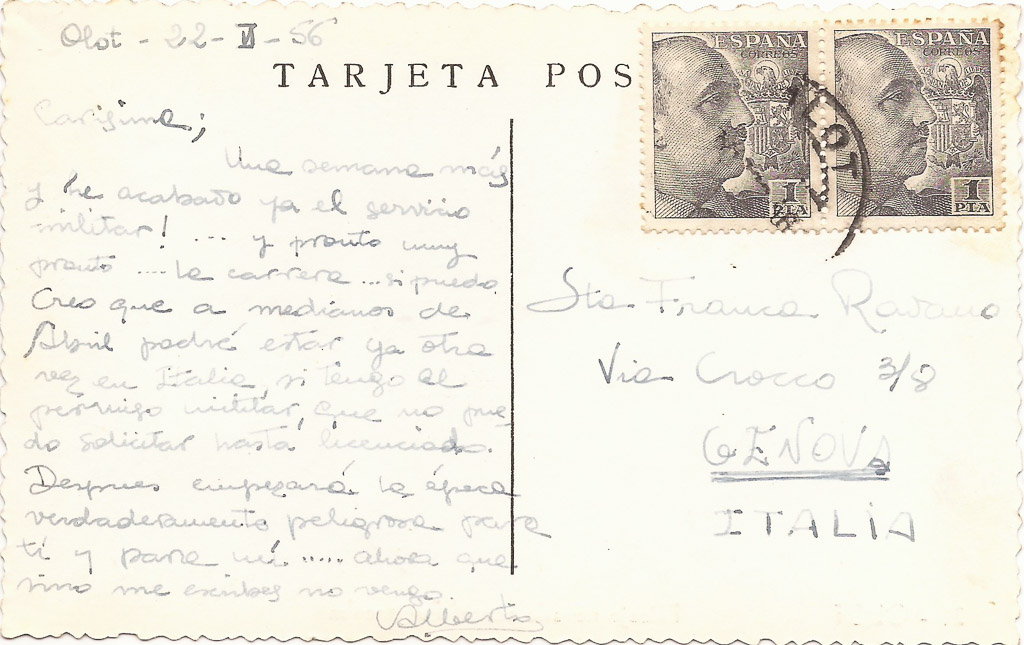 Olot - 22 - II - 56
TARJETA POS
Carisima;
Una semana más
y he acabado ya el servicio
militar! ... y pronto muy
pronto .... la carrera ... si puedo.
Creo que a medianos de
Abril podré estar ya otra
vez en Italia, si tengo el
permiso militar, que no pue-
do solicitar hasta licenciado.
Despues empezará la época
verdaderamente peligrosa para
ti y para mi ..... ahora que
sino me escribes no vengo.
Alberto
ESPAÑA
CORREOS
1
PTA
ESPAÑA
CORREOS
1
PTA
OLOT
Sta Franca Ravano
Via Crocco 3/8
GENOVA
ITALIA